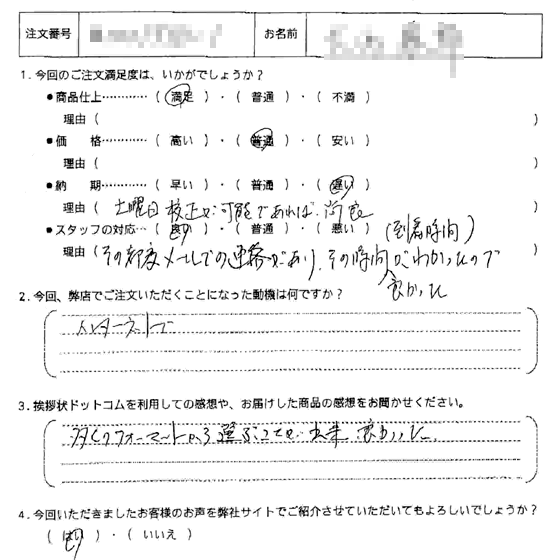 注文番号 お名前
1.今回のご注文満足度は、いかがでしょうか?
●商品仕上…………( 満足 )・( 普通 )・( 不満 )
理由( )
●価 格…………( 高い )・( 普通 )・( 安い )
理由( )
●納 期…………( 早い )・( 普通 )・( 遅い )
理由( 土曜日校正が可能であれば、尚良 )
●スタッフの対応…( 良い )・( 普通 )・( 悪い )
(到着時間)
理由( その都度メールでの連絡があり、その時間がわかったので
良かった
2.今回、弊店でご注文いただくことになった動機は何ですか?
インターネットで
3.挨拶状ドットコムを利用しての感想や、お届けした商品の感想をお聞かせください。
多くのフォーマートから選ぶことが出来 良かった。
4.今回いただきましたお客様のお声を弊社サイトでご紹介させていただいてもよろしいでしょうか?
( はい )・( いいえ )